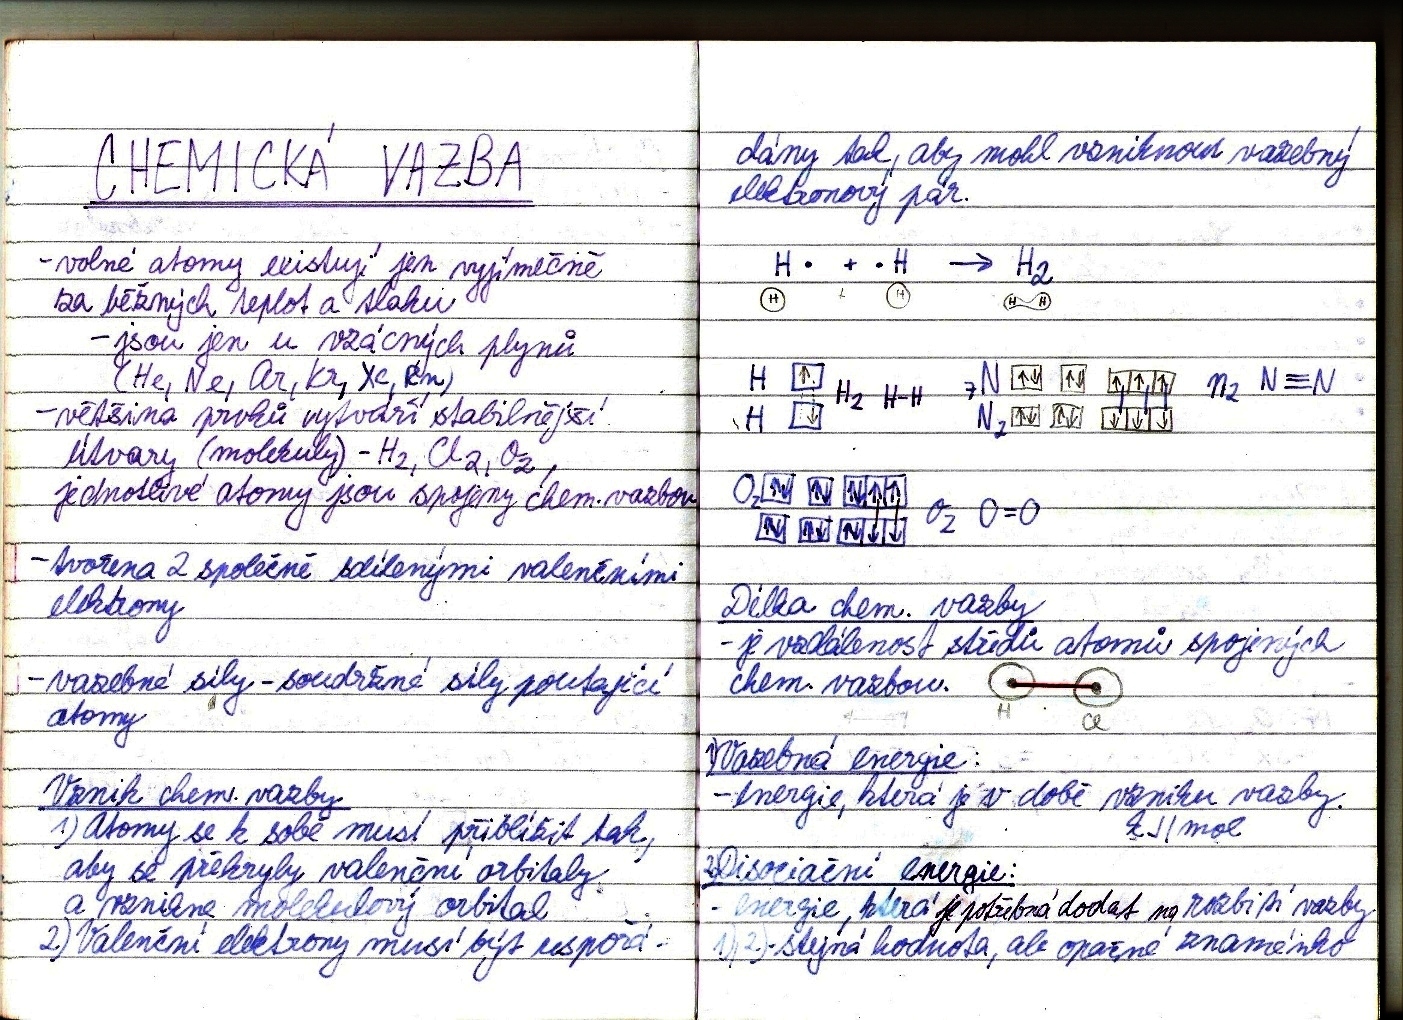 CHEMICKÁ VAZBA
- volné atomy existují jen vyjímečně
za běžných teplot a tlaku
- jsou jen u vzácných plynů
(He, Ne, Ar, Kr, Xe, Rn)
- většina prvků vytváří stabilnější
útvary (molekuly) - H2, Cl2, O2,
jednotlivé atomy jsou spojeny chem. vazbou
- tvořena 2 společně sdílenými valenčními
elektrony
- vazebné síly - soudržné síly poutající
atomy
Vznik chem. vazby
1) Atomy se k sobě musí přiblížit tak,
aby se překryly valenční orbitaly
a vznikne molekulový orbital
2) Valenční elektrony musí být uspořá-
dány tak, aby mohl vzniknout vazebný
elektronový pár.
H · + · H → H2
H + H H H
H ↑ H2 H-H 7N ↑↓ ↑↓ ↑ ↑ ↑ n2 N≡N
H ↓ N2 ↑↓ ↑↓ ↓ ↓ ↓
O2 ↑↓ ↑↓ ↑↓ ↑ ↑ O2 O=O
↑↓ ↑↓ ↑↓ ↓ ↓
Délka chem. vazby
- je vzdálenost středů atomů spojených
chem. vazbou.
H Cl
1) Vazebná energie:
- energie, která je v době vzniku vazby.
kJ/mol
2) Disociační energie:
- energie, která je potřebná dodat na rozbití vazby
1) 2) - stejná hodnota, ale opačné znaménko